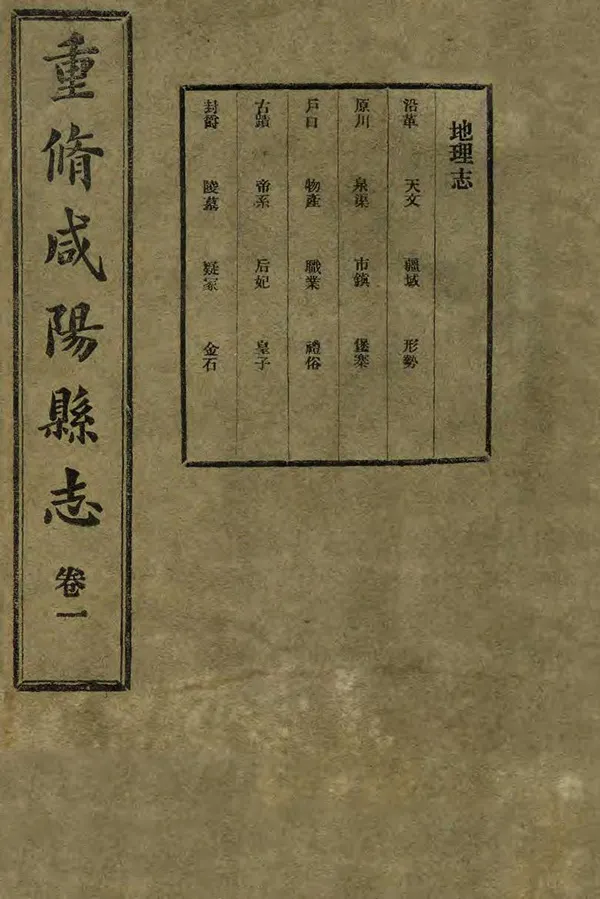 重脩咸陽縣志 卷一
地理志
沿革 天文 疆域 形勢
原川 泉渠 市鎮 堡寨
戶口 物產 職業 禮俗
古蹟 帝系 后妃 皇子
封爵 陵墓 疑冢 金石